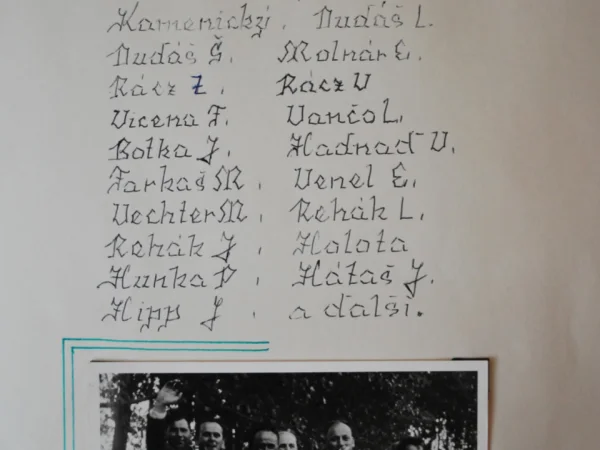 Kamenický. Dudáš L.
Dudáš Š. Molnár E.
Rácz Z. Rácz V
Vicena F. Vančo L.
Botka J. Hadnaď V.
Farkaš M. Venel E.
Vechter M. Rehák L.
Rehák J. Holota
Hunka P. Hátaš J.
Hipp J. a ďalší.